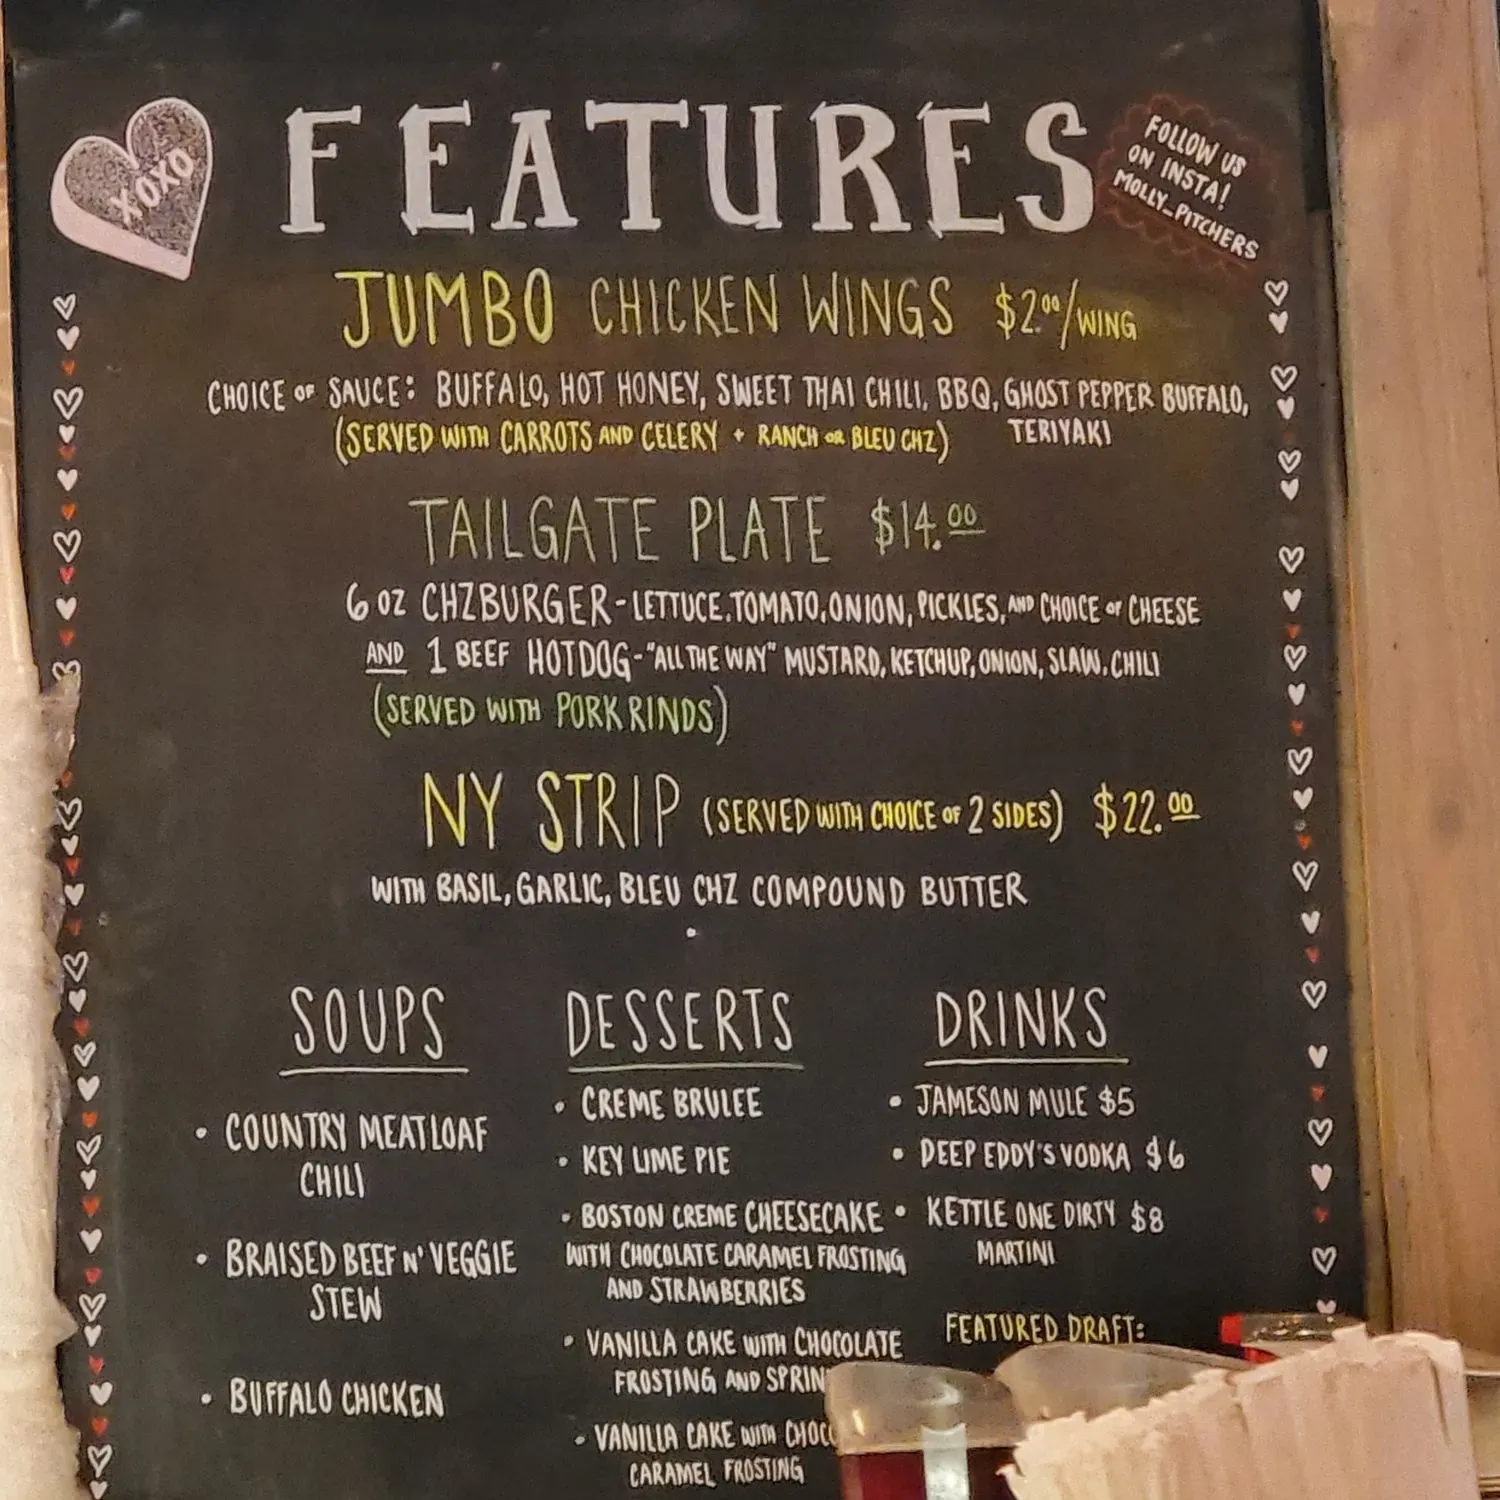 XOXO
FEATURES
FOLLOW US
ON INSTA!
MOLLY_PITCHERS
JUMBO CHICKEN WINGS $2.00/WING
CHOICE OF SAUCE: BUFFALO, HOT HONEY, SWEET THAI CHILI, BBQ, GHOST PEPPER BUFFALO,
TERIYAKI
(SERVED WITH CARROTS AND CELERY + RANCH OR BLEU CHZ)
TAILGATE PLATE $14.00
6 OZ CHZBURGER-LETTUCE, TOMATO, ONION, PICKLES, AND CHOICE OF CHEESE
AND 1 BEEF HOTDOG-"ALL THE WAY" MUSTARD, KETCHUP, ONION, SLAW, CHILI
(SERVED WITH PORK RINDS)
NY STRIP (SERVED WITH CHOICE OF 2 SIDES) $22.00
WITH BASIL, GARLIC, BLEU CHZ COMPOUND BUTTER
SOUPS
• COUNTRY MEATLOAF
CHILI
• BRAISED BEEF N' VEGGIE
STEW
• BUFFALO CHICKEN
DESSERTS
• CREME BRULEE
• KEY LIME PIE
• BOSTON CREME CHEESECAKE
WITH CHOCOLATE CARAMEL FROSTING
AND STRAWBERRIES
• VANILLA CAKE WITH CHOCOLATE
FROSTING AND
• VANILLA CAKE WITH
CARAMEL FROSTING
DRINKS
• JAMESON MULE $5
• DEEP EDDY'S VODKA $6
• KETTLE ONE DIRTY $8
MARTINI
FEATURED DRAFT: